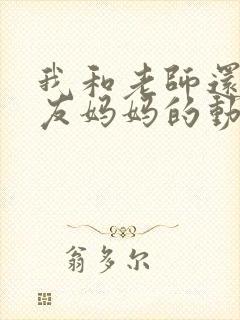 我和老師還
友妈妈的動
翁多尔